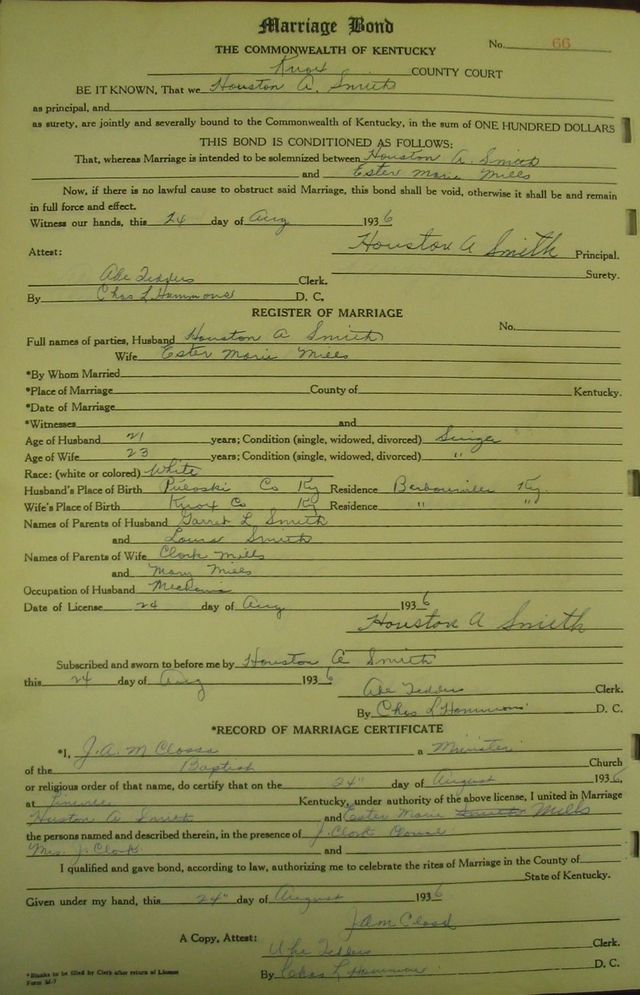 Marriage Bond
THE COMMONWEALTH OF KENTUCKY
No. 66
Knox COUNTY COURT
BE IT KNOWN, That we Houston A. Smith
as principal, and
as surety, are jointly and severally bound to the Commonwealth of Kentucky, in the sum of ONE HUNDRED DOLLARS
THIS BOND IS CONDITIONED AS FOLLOWS:
That, whereas Marriage is intended to be solemnized between Houston A. Smith
and Ester Marie Mills
Now, if there is no lawful cause to obstruct said Marriage, this bond shall be void, otherwise it shall be and remain
in full force and effect.
Witness our hands, this 24 day of Aug 1936
Houston A Smith Principal.
Attest:
Surety.
Abe Tedders Clerk.
By Chas L Hammons D. C.
REGISTER OF MARRIAGE
No.
Full names of parties, Husband Houston A Smith
Wife Ester Marie Mills
*By Whom Married
*Place of Marriage County of Kentucky.
*Date of Marriage
*Witnesses and
Age of Husband 21 years; Condition (single, widowed, divorced) Single
Age of Wife 23 years; Condition (single, widowed, divorced) "
Race: (white or colored) White
Husband's Place of Birth Puloski Co Ky Residence Berbourville Ky
Wife's Place of Birth Knox Co Ky Residence " "
Names of Parents of Husband Garret L Smith
and Louisa Smith
Names of Parents of Wife Clark Mills
and Mary Mills
Occupation of Husband
Date of License 24 day of Aug 1936
Houston A Smith
Subscribed and sworn to before me by Houston A Smith
this 24 day of Aug 1936
Abe Tedders Clerk.
By Chas L Hammons D. C.
*RECORD OF MARRIAGE CERTIFICATE
*I, J. A. M a Minister
of the Baptist Church
or religious order of that name, do certify that on the 24" day of August 1936
at Kentucky, under authority of the above license, I united in Marriage
Huston A Smith and Ester Marie Mills
the persons named and described therein, in the presence of J. Clark
Mrs. J. Clark and
I qualified and gave bond, according to law, authorizing me to celebrate the rites of Marriage in the County of
State of Kentucky.
Given under my hand, this 24" day of August 1936
A Copy, Attest:
Abe Tedders Clerk.
By Chas L Hammons D. C.
*Blanks to be filled by Clerk after return of License
Form M-7